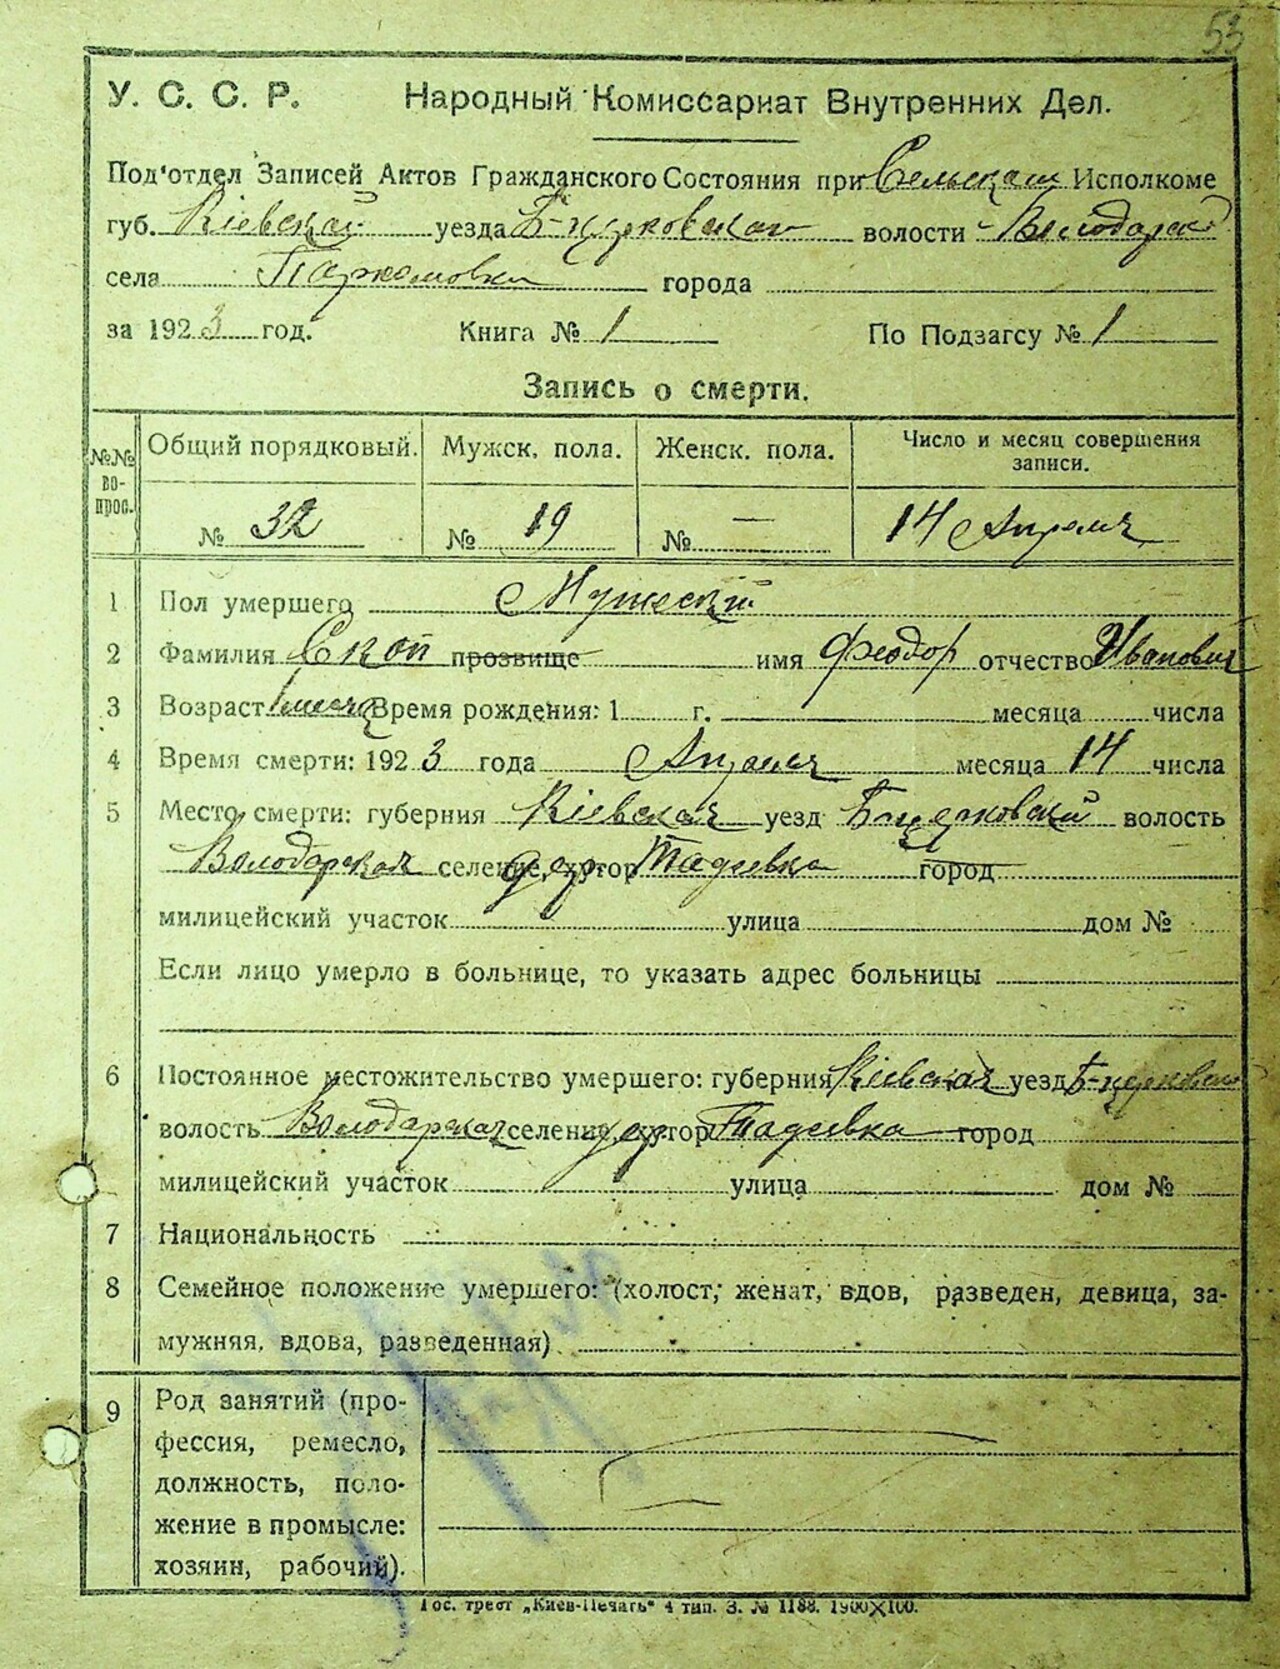 53
У. С. С. Р. Народный Комиссариат Внутренних Дел.
Под'отдел Записей Актов Гражданского Состояния при Сельском Исполкоме
губ. Кіевской уезда Б-Церковской волости Володарск
села Пархомовка города
за 1923 год. Книга № 1 По Подзагсу № 1
Запись о смерти.
№№ вопрос. Общий порядковый. Мужск. пола. Женск. пола. Число и месяц совершения записи.
№ 32 № 19 № — 14 Апреля
1 Пол умершего Мужеский
2 Фамилия Скоп прозвище имя Феодор отчество Иванович
3 Возраст 1 месяц Время рождения: 1 г. месяца числа
4 Время смерти: 1923 года Апреля месяца 14 числа
5 Место смерти: губерния Кіевская уезд Б-Церковский волость
Володарская селение, хутор дер. Тадеевка город
милицейский участок улица дом №
Если лицо умерло в больнице, то указать адрес больницы
6 Постоянное местожительство умершего: губерния Кіевская уезд Б-Церковский
волость Володарская селение, хутор дер. Тадеевка город
милицейский участок улица дом №
7 Национальность
8 Семейное положение умершего: (холост, женат, вдов, разведен, девица, за-
мужняя, вдова, разведенная)
9 Род занятий (про-
фессия, ремесло,
должность, поло-
жение в промысле:
хозяин, рабочий).
Гос. трест „Киев-Печать" 4 тип. З. № 1188. 1900×100.